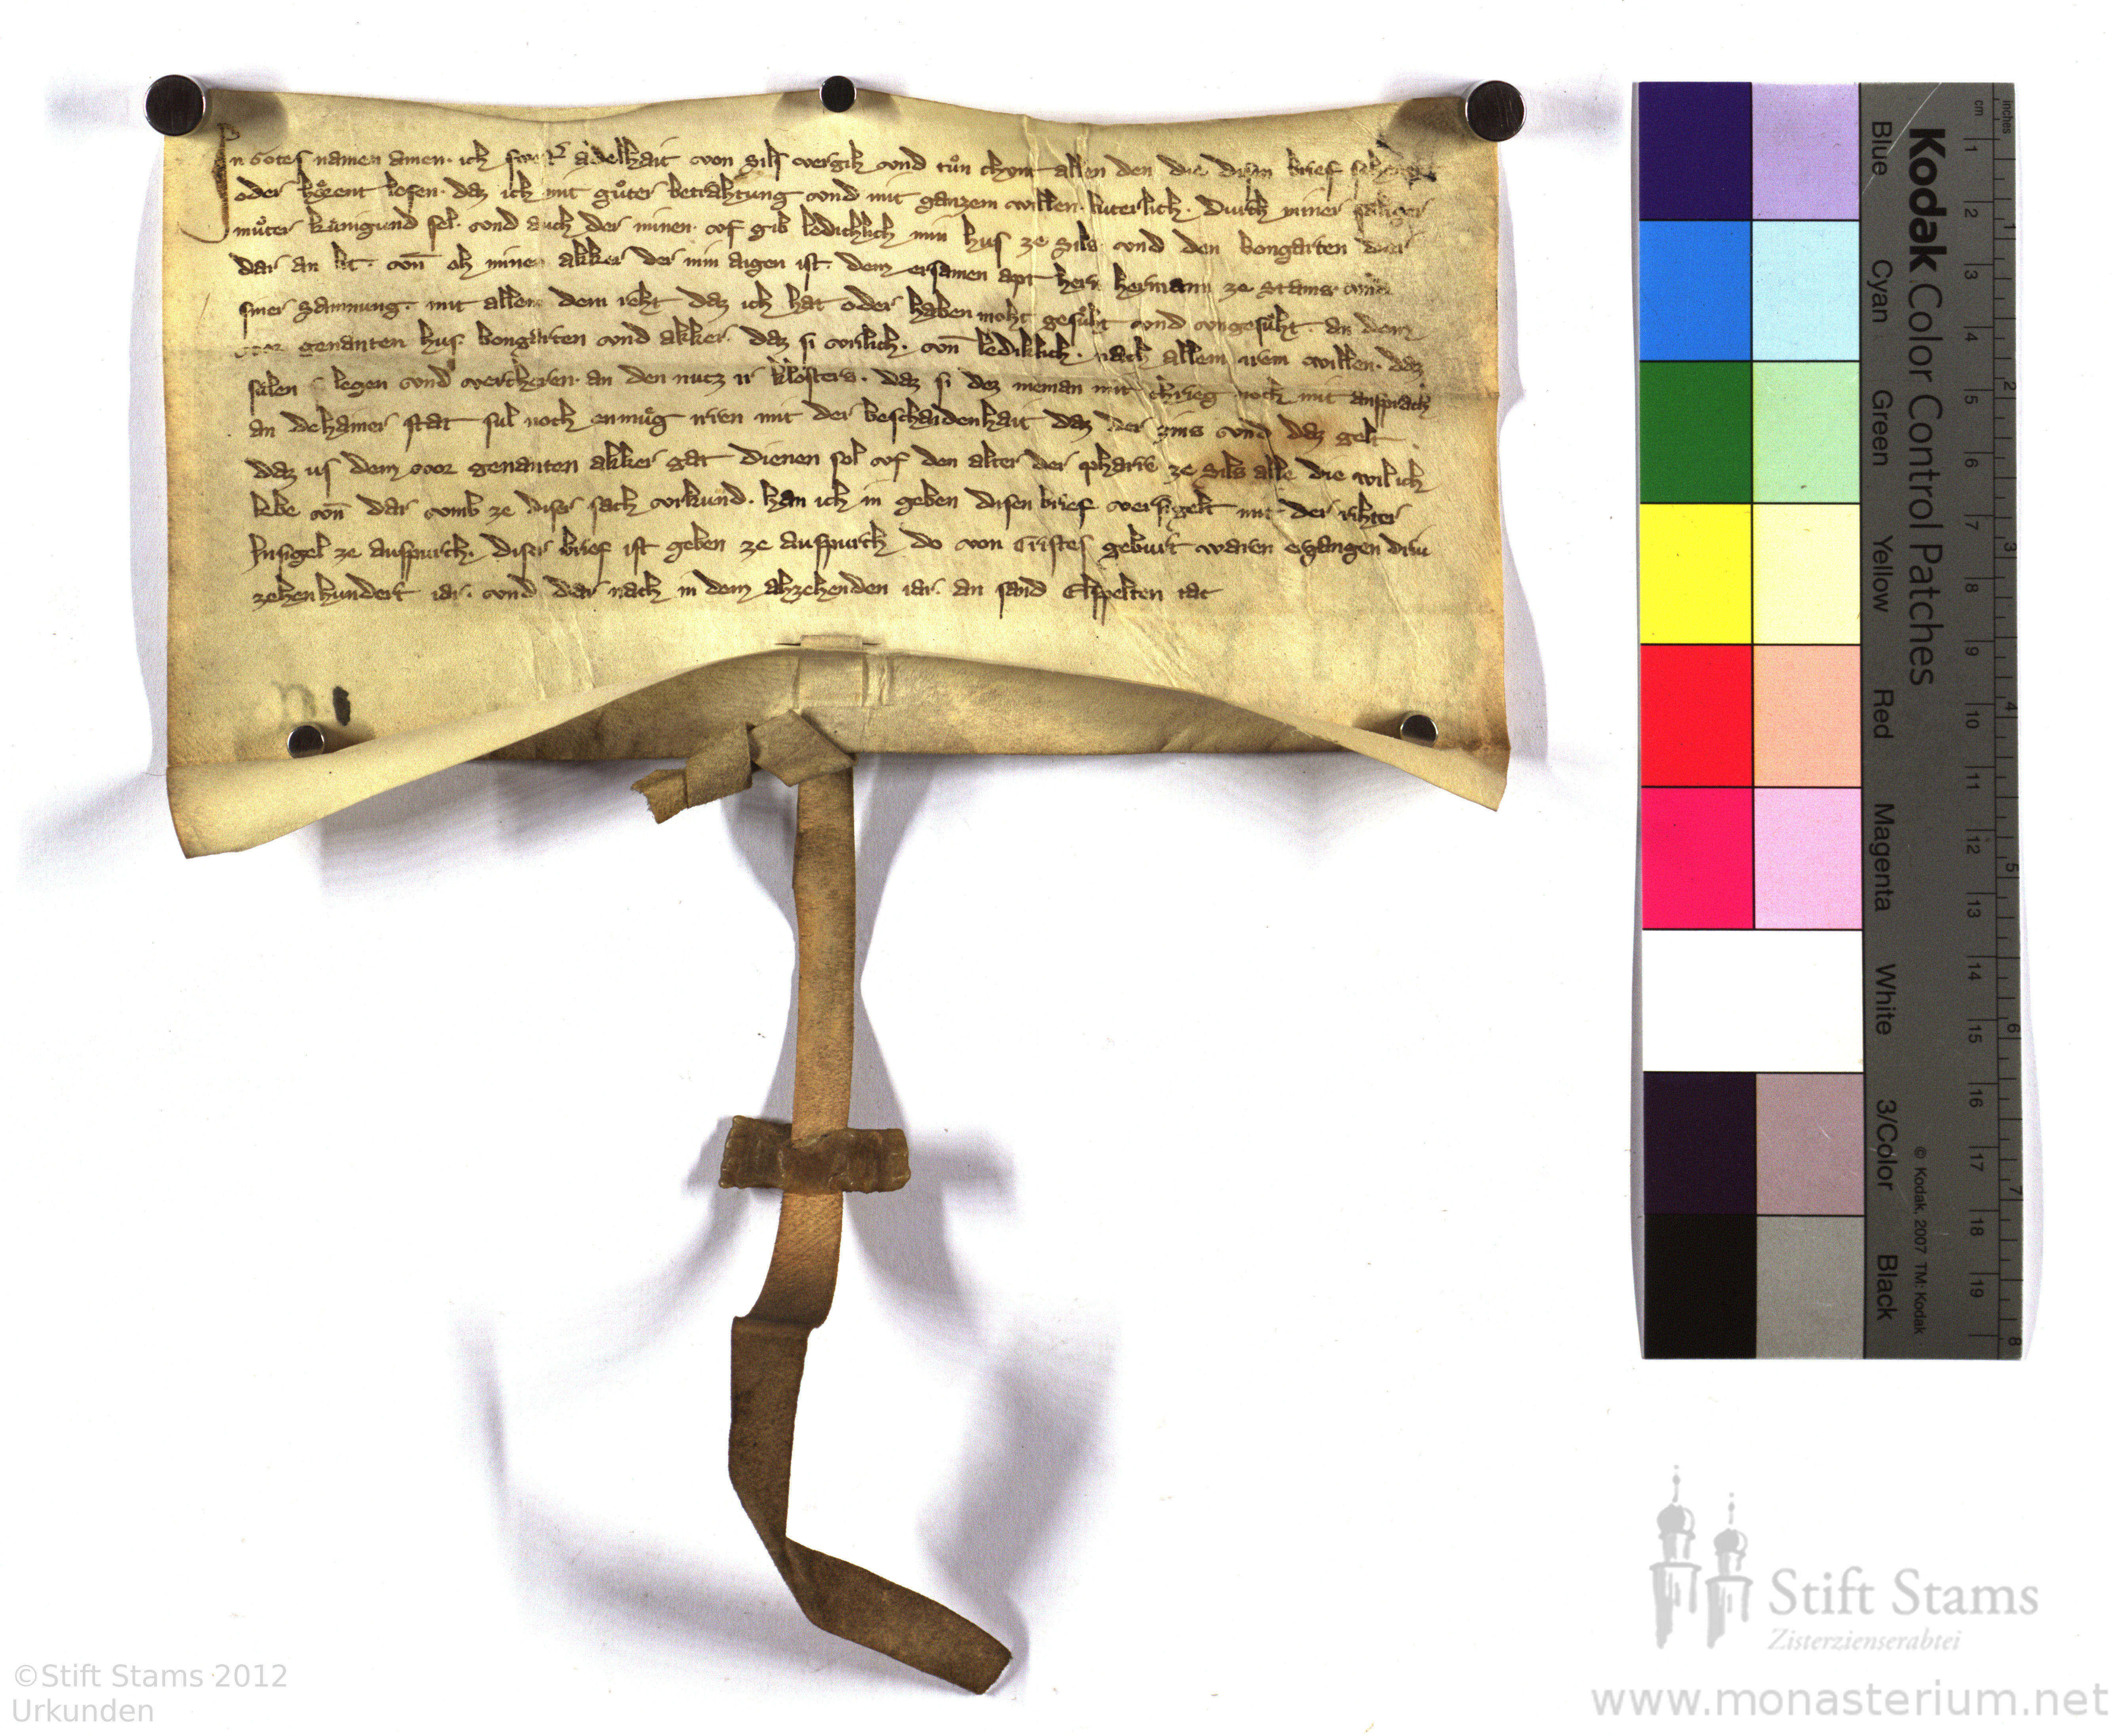 In Gotes namen amen. ich swest adelhait von Sils vergih vnd tůn chunt allen den die disen brief sehent
oder hoͤrent lesen. daz ich mit gůter betrahtung vnd mit ganzem willen. luterlich. durch miner saͤliger
můter kunigund sel. vnd auch der minen. vf gib ledichlich min hus ze Sils vnd den bongarten der
dar an lit. vn̄ oh minen akker der min aigen ist. dem ersamen apt hern herman ze Stams vnd
siner Samnung. mit allem dem reht daz ich hat oder haben moht gesůht vnd vngesůht. an dem
vor genanten hus bongarten vnd akker. daz si vrilich. vn̄ lediklich. nach allem irem willen. daz
sulen legen vnd vercheren. an den nutz ir klosters. daz si dez nieman mit chrieg noch mit ansprach
an dehainer stat sul noch enmuͤg irren mit der beschaidenhait daz der zins vnd daz gelt
daz us dem vor genanten akker gat dienen sol vf den alter der pharre ze Sils alle die wil ich
lebe vn̄ dar vmb ze diser sach vrkund. han ich in geben disen brief versigelt mit der rihter
Insigel ze auspurch. Diser brief ist geben ze auspurch do von Cristes geburt waren ergangen driu
zehenhundert iar. vnd dar nach in dem ahzehenden iar. an sand Elspelten tac
Kodak Color Control Patches
Blue Cyan Green Yellow Red Magenta White 3/Color Black
© Kodak, 2007 TM: Kodak
cm 1 2 3 4 5 6 7 8 9 10 11 12 13 14 15 16 17 18 19
inches 1 2 3 4 5 6 7 8
Stift Stams
Zisterzienserabtei
www.monasterium.net
©Stift Stams 2012
Urkunden